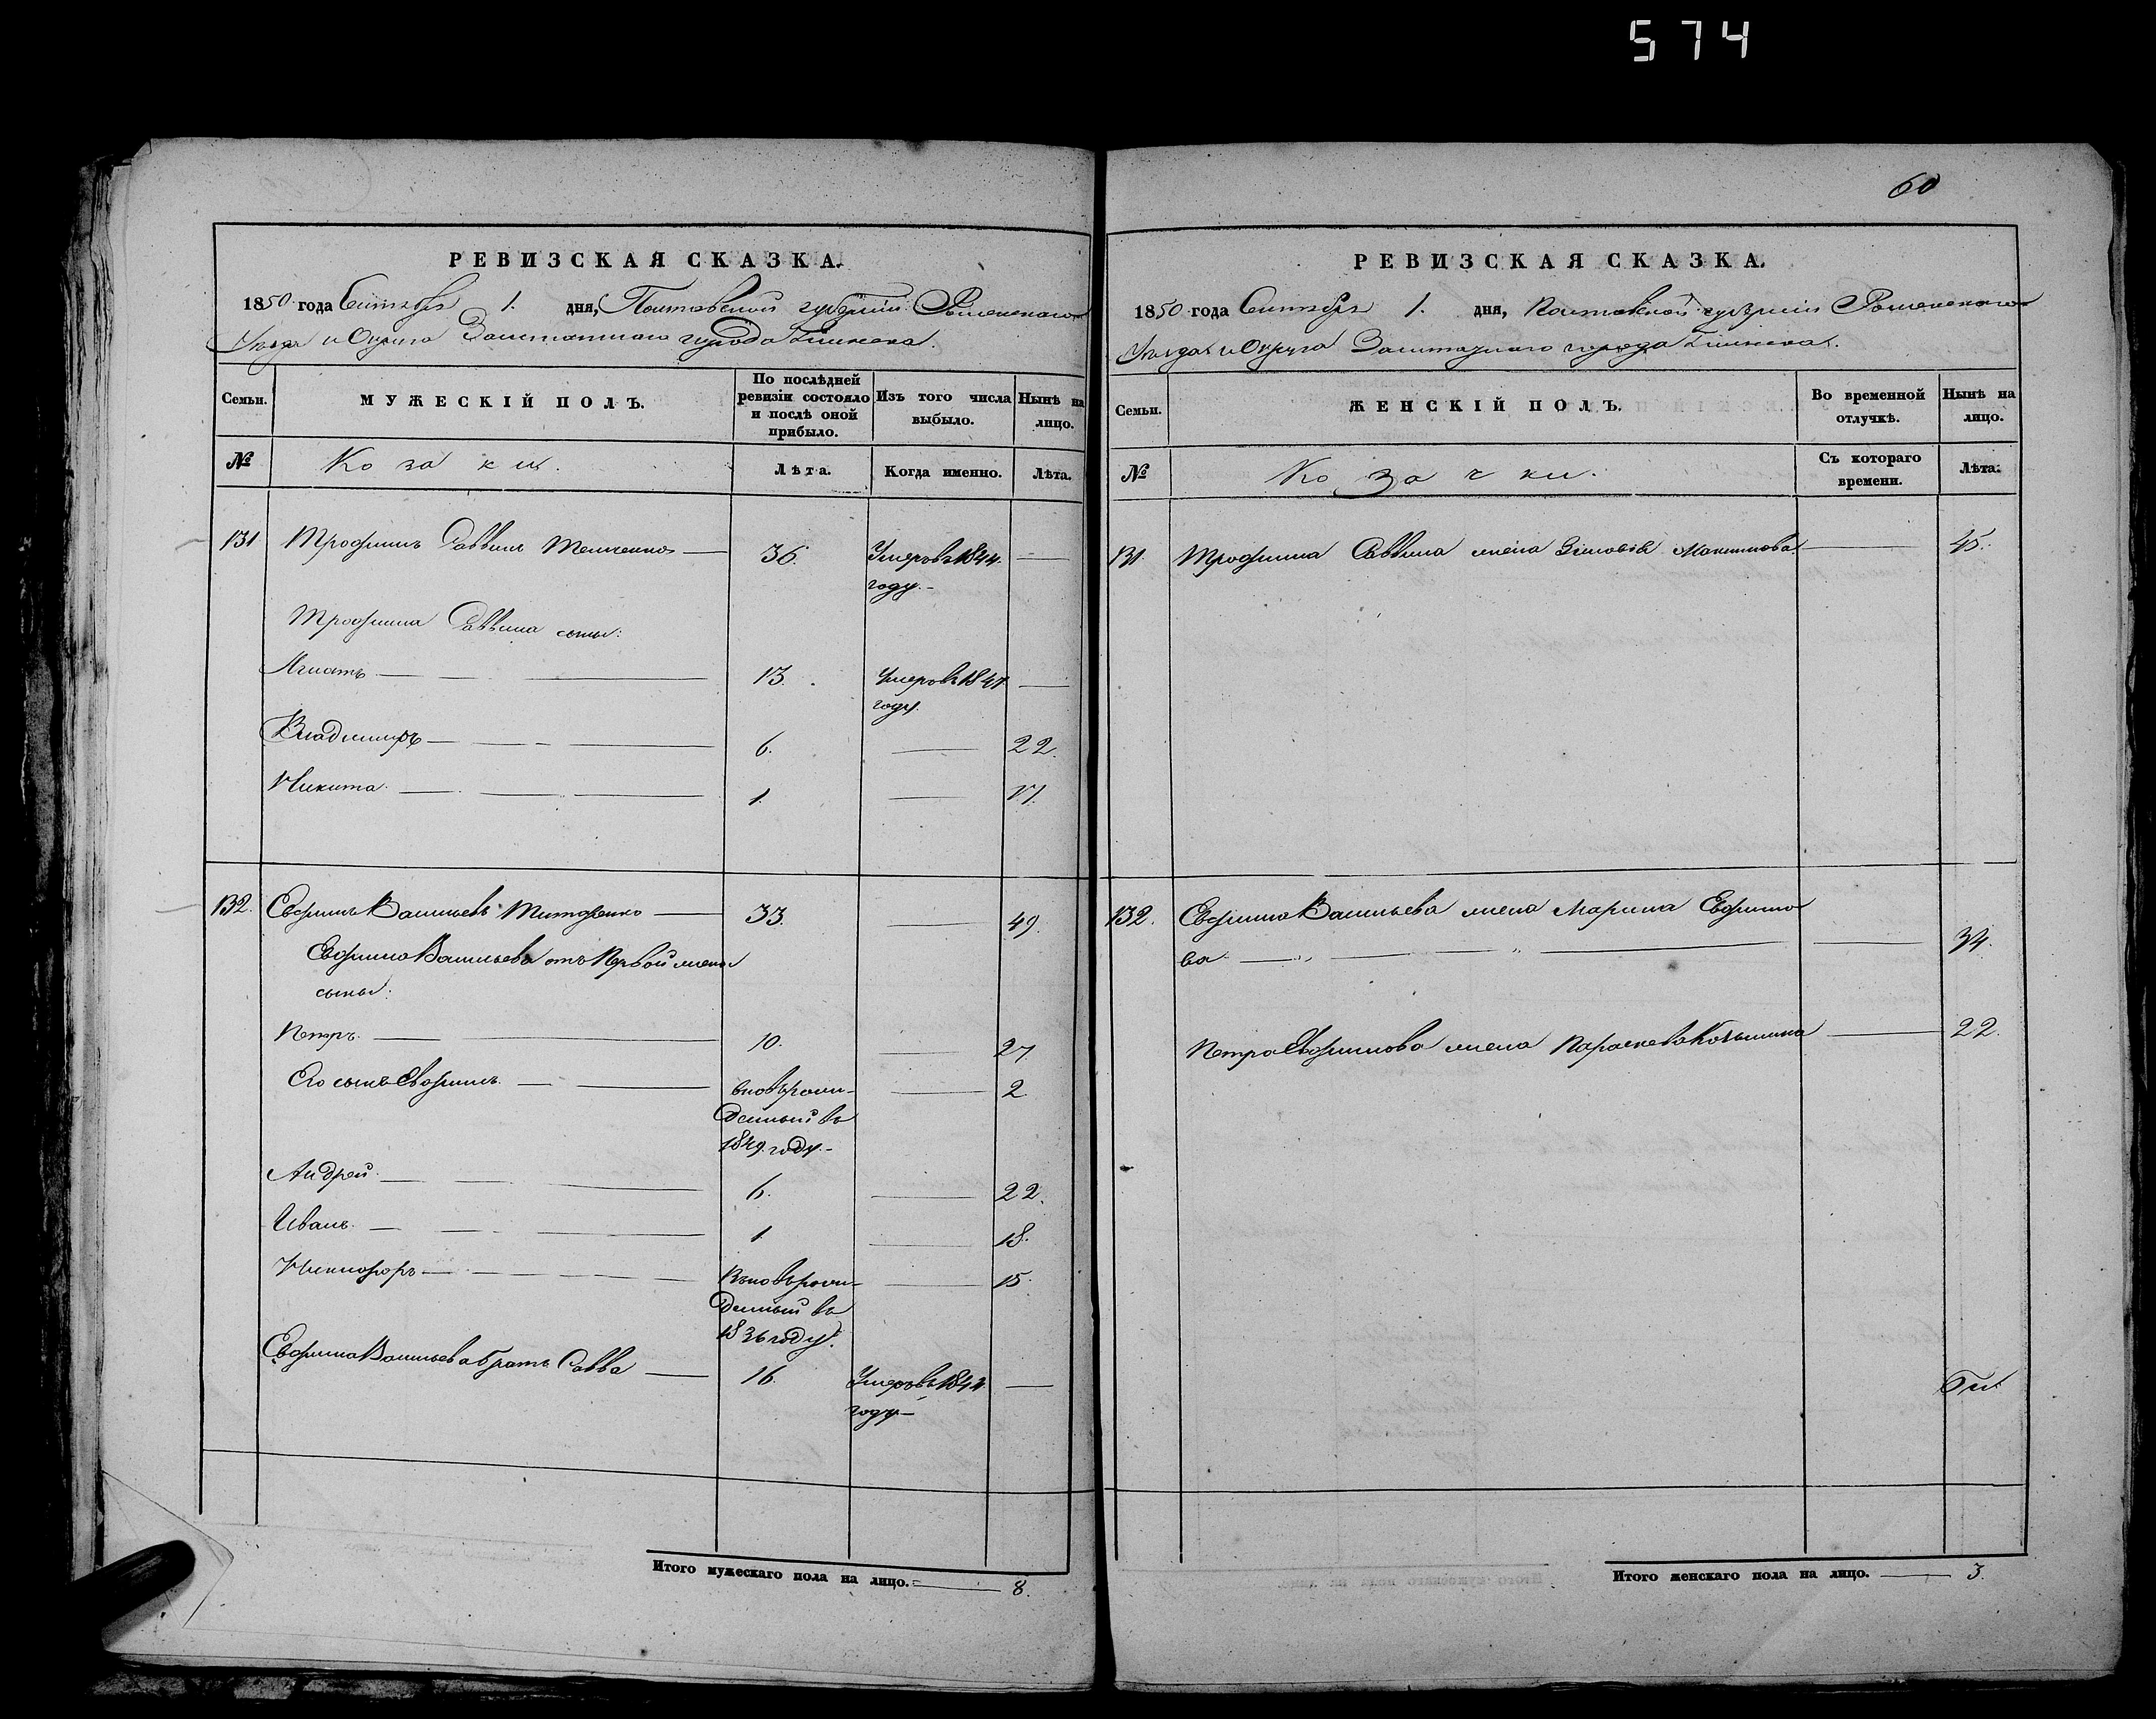 574
60
РЕВИЗСКАЯ СКАЗКА.
1850 года Сентября 1. дня, Полтавской губерніи Роменскаго
Уѣзда и Округа Заштатнаго города Глинска.
Семьи.
МУЖЕСКІЙ ПОЛЪ.
По послѣдней ревизіи состояло и послѣ оной прибыло.
Изъ того числа выбыло.
Нынѣ на лицо.
№
Козаки.
Лѣта.
Когда именно.
Лѣта.
131 Трофимъ Саввинъ — 36. Умеръ въ 1844. —
году.-
Трофима Саввина сыны:
Игнатъ — 13. Умеръ въ 1847 —
году.
Владимиръ — 6. — 22.
Никита — 1. — 17.
132. Евфимъ Васильевъ Титаренко — 33. — 49.
Евфима Васильева отъ Первой жены
сыны:
Петръ. — 10. 27
Его сынъ Евфимъ. — вновьрож- — 2
денный въ
1849 году.-
Андрей. — 6. — 22.
Иванъ. — 1 — 18.
Никифоръ — Вновьрож- — 15.
денный въ
1836 году.
Евфима Васильева братъ Савва — 16. Умеръ въ —
году —
Итого мужескаго пола на лицо. — 8.
РЕВИЗСКАЯ СКАЗКА.
1850 года Сентября 1. дня, Полтавской губерніи Роменскаго
Уѣзда и Округа Заштатнаго города Глинска.
Семьи.
ЖЕНСКІЙ ПОЛЪ.
Во временной отлучкѣ.
Нынѣ на лицо.
№
Козачки.
Съ котораго времени.
Лѣта.
131. Трофима Саввина жена Зиновія Максимова — 45.
132. Евфима Васильева жена Марина Ефимо
ва — 34.
Петра Евфимова жена Параскева Козьмина — 22.
Итого женскаго пола на лицо. — 3.